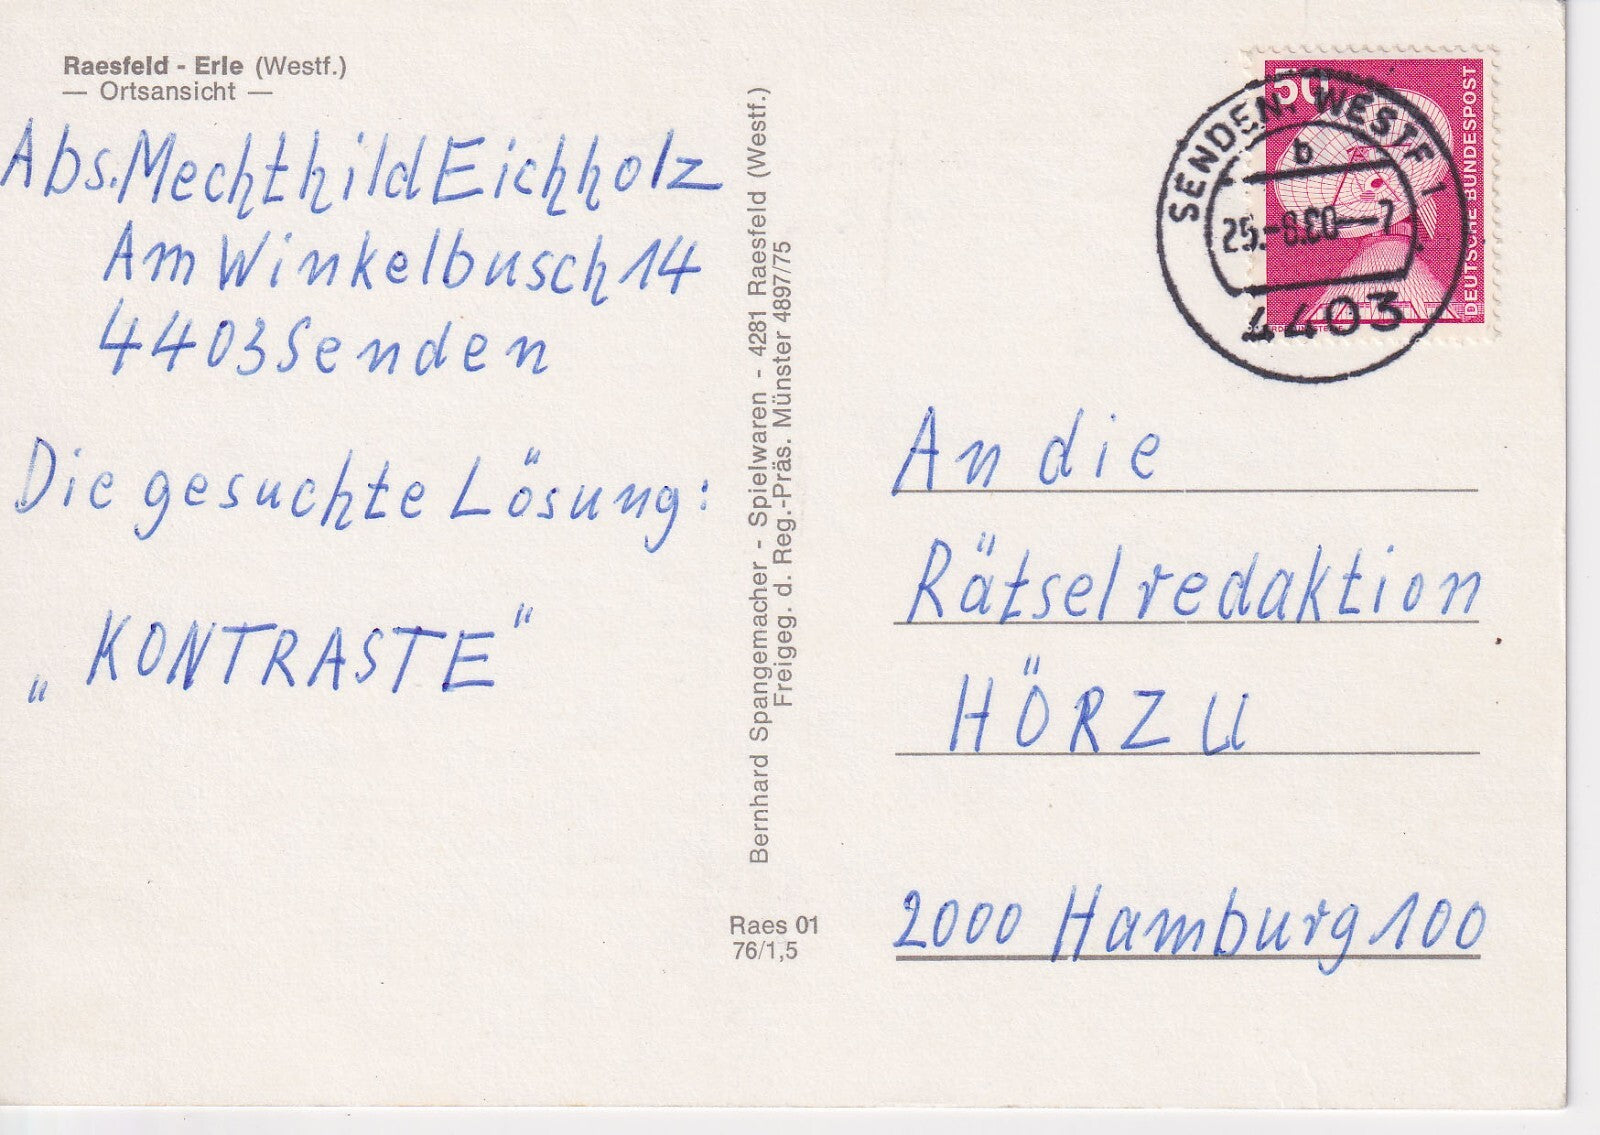 Raesfeld - Erle (Westf.)
— Ortsansicht —
Abs. Mechthild Eichholz
Am Winkelbusch 14
4403 Senden
Die gesuchte Lösung:
„KONTRASTE"
Bernhard Spangemacher - Spielwaren - 4281 Raesfeld (Westf.)
Freigeg. d. Reg.-Präs. Münster 4897/75
Raes 01
76/1,5
50
DEUTSCHE BUNDESPOST
SENDEN, WESTF 1
b
25.-8.80--7
4403
An die
Rätselredaktion
HÖRZU
2000 Hamburg 100